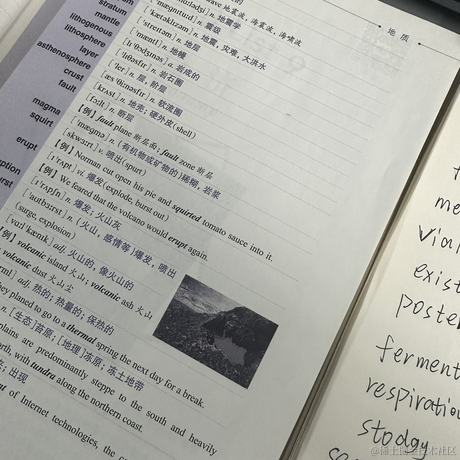 地 质
stratum
mantle
lithogenous
lithosphere
layer
asthenosphere
crust
fault
magma
squirt
erupt
wave 地震波, 海震波, 海啸波
n. 地震学
['mægnɪtjuːd] n. 震级
['kætəklɪzəm] n. 地震, 灾难, 大洪水
n. 地层
['mæntl] n. 地幔
a. 岩成的
n. 岩石圈
n. 层, 阶层
n. 软流圈
[krʌst] n. 地壳; 硬外皮(shell)
[fɔːlt] n. 断层
【例】fault plane 断层面; fault zone 断层
['mægmə] n. (有机物或矿物的)稀糊, 岩浆
[skwɜːt] v. 喷出(spurt)
【例】Norman cut open his pie and squirted tomato sauce into it.
[ɪ'rʌpt] vi. 爆发(explode, burst out)
【例】We feared that the volcano would erupt again.
[ɪ'rʌpʃn] n. 爆发; 火山灰
n. (火山, 感情等) 爆发, 喷出
(surge, explosion)
adj. 火山的, 像火山的
【例】volcanic island 火山; volcanic ash 火山
volcanic dust 火山尘
adj. 热的; 热量的; 保热的
They planed to go to a thermal spring the next day for a break.
n. [生态]苔原; [地理]冻原; 冻土地带
plains are predominantly steppe to the south and heavily
north, with tundra along the northern coast.
出现
of Internet technologies, the
me
exist
poster
ferment
respiration
stoday
@稀土掘金技术社区